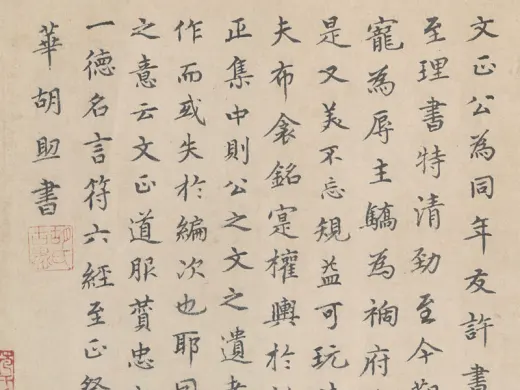 文正公為同年友許書
至理書特清勁至今
寵為辱主驕為禍府
是又美不忘規益可玩
夫布衾銘寔權輿於
正集中則公之文之遺
作而或失於編次也耶
之意云文正道服贊忠
一德名言符六經至正
華胡助書